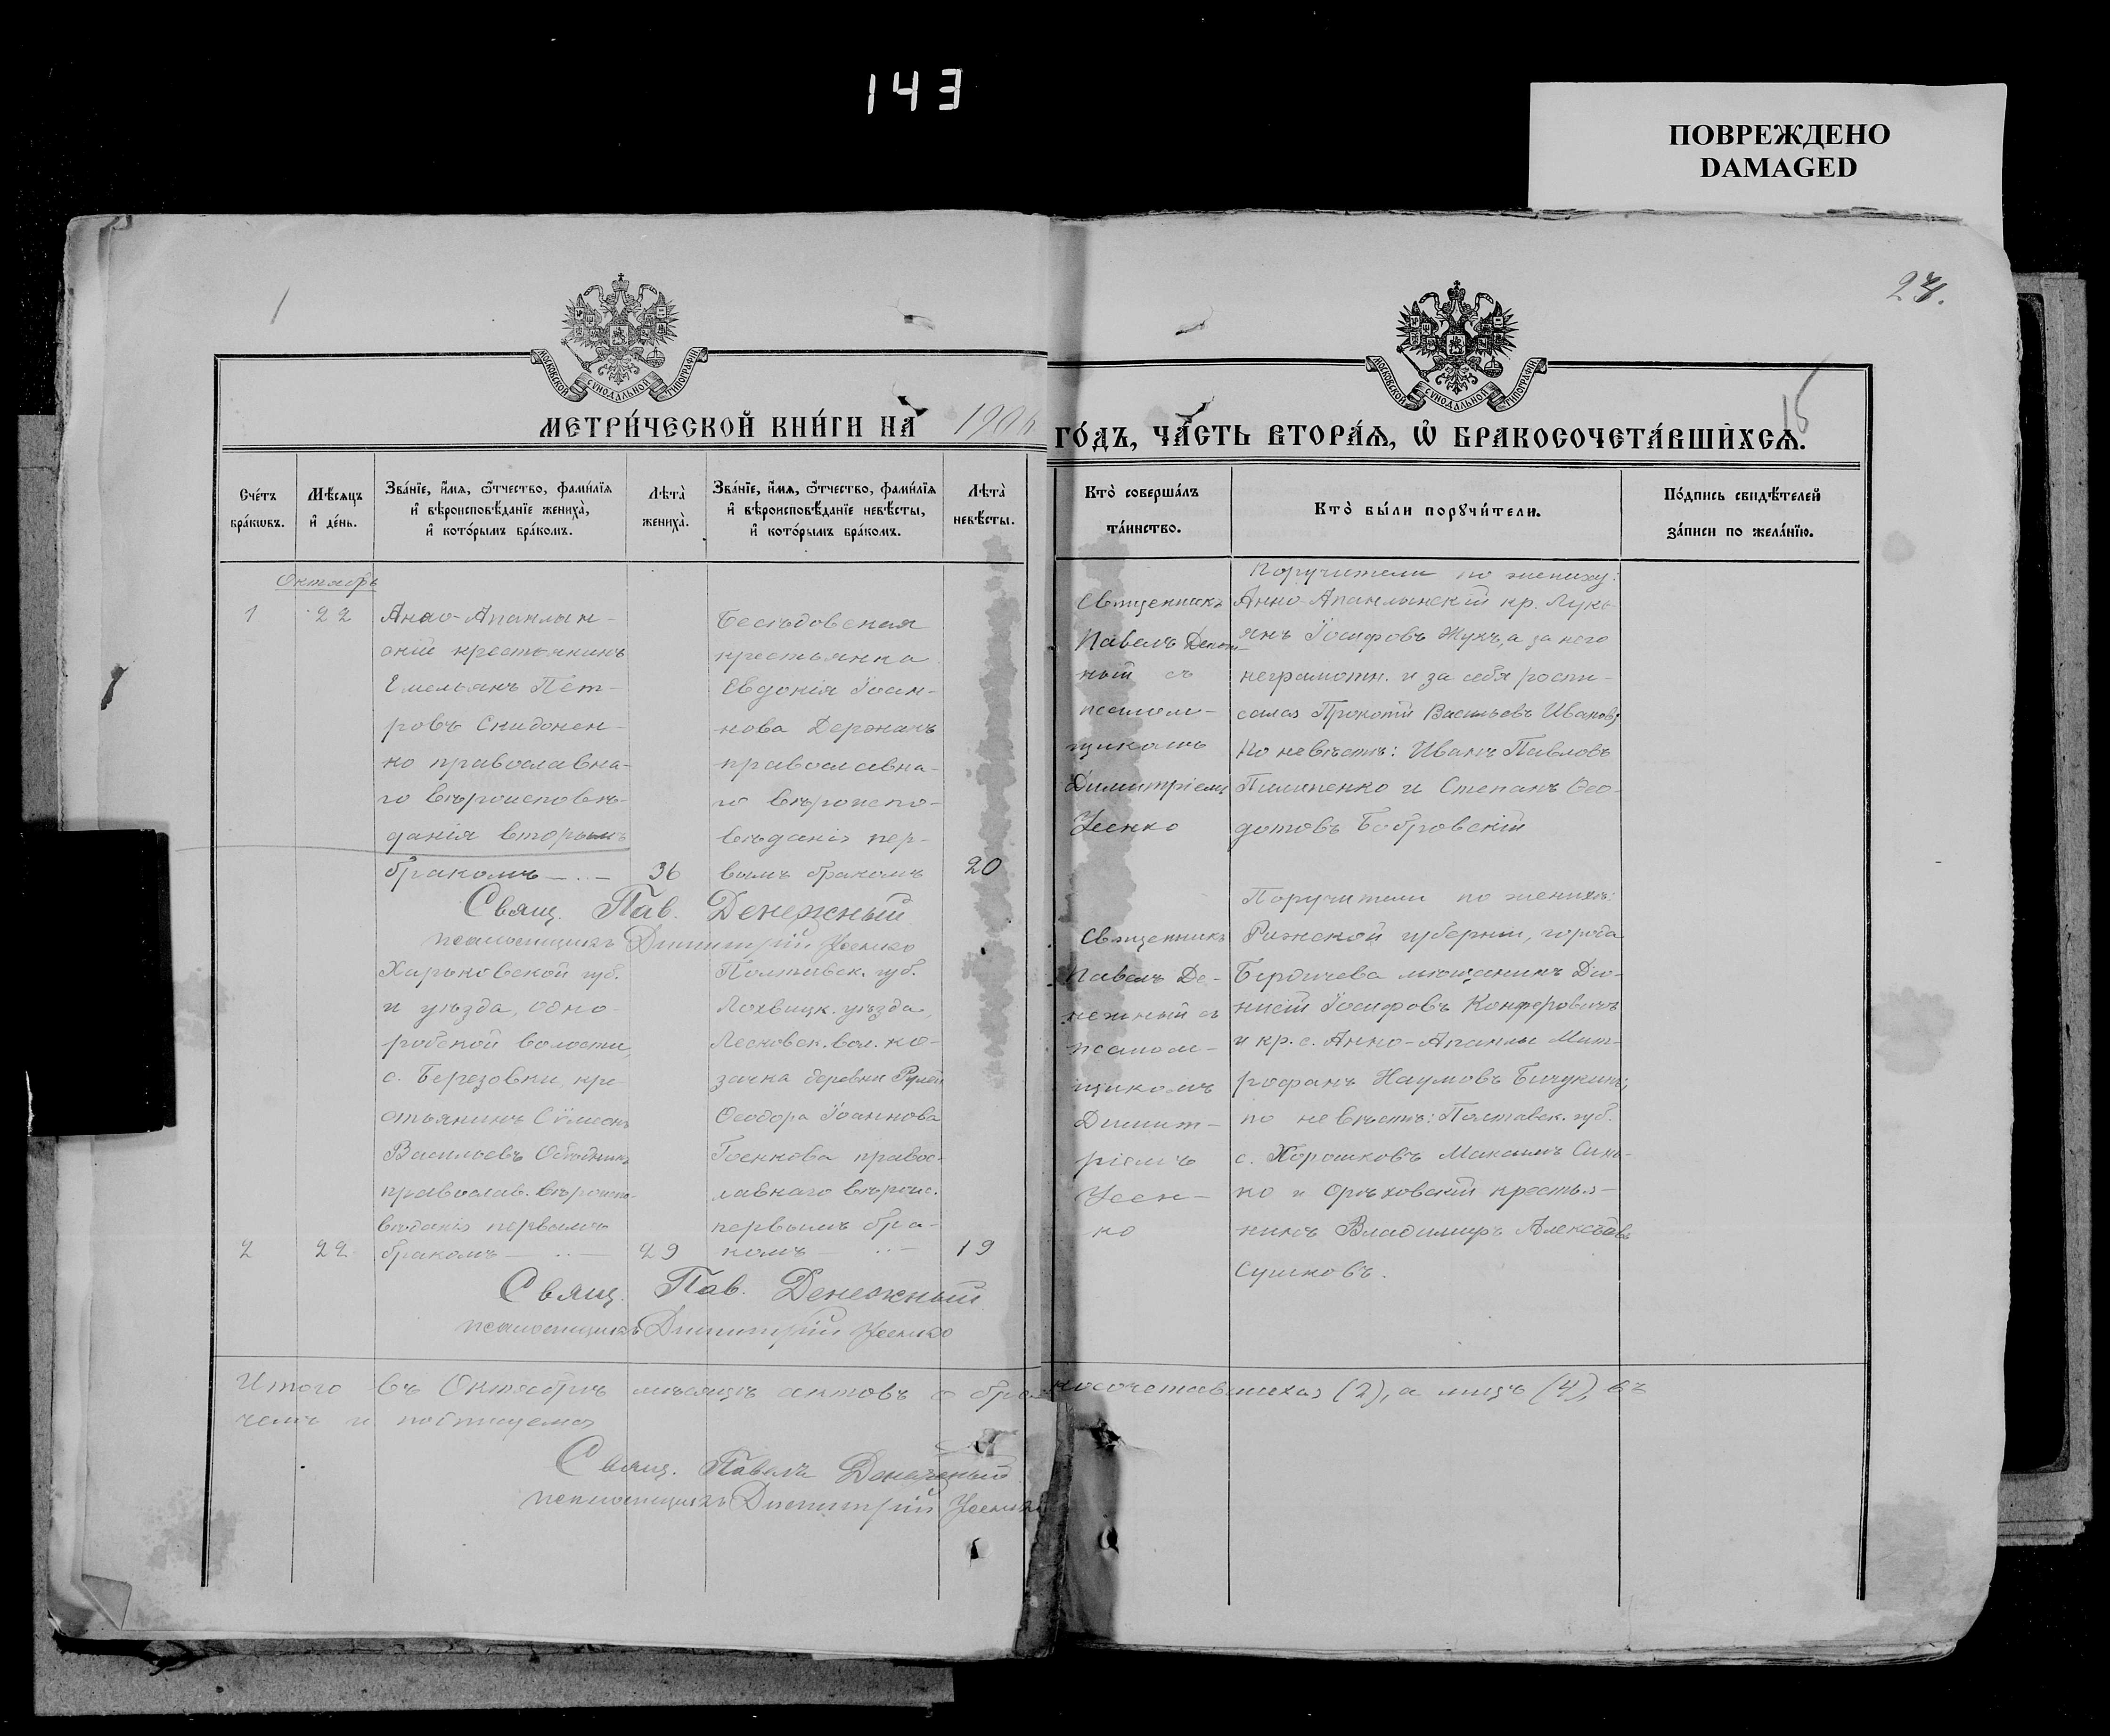 143
ПОВРЕЖДЕНО
DAMAGED
1
МОСКОВСКОЙ СѴНОДАЛЬНОЙ ТИПОГРАФІИ
МОСКОВСКОЙ СѴНОДАЛЬНОЙ ТИПОГРАФІИ
15
МЕТРИ́ЧЕСКОЙ КНИ́ГИ НА̀ 190
ГО́ДЪ, ЧА́СТЬ ВТОРА́Я, Ѡ҆ БРАКОСОЧЕТА́ВШИХСЯ.
Сче́тъ бра́кѡвъ.
Мѣ́сяцъ и҆ де́нь.
Зва́нїе, и҆́мя, ѻ҆́тчество, фами́лїя и҆ вѣроисповѣ́данїе жениха̀, и҆ кото́рымъ бра́комъ.
Лѣта̀ жениха̀.
Зва́нїе, и҆́мя, ѻ҆́тчество, фами́лїя и҆ вѣроисповѣ́данїе невѣ́сты, и҆ кото́рымъ бра́комъ.
Лѣта̀ невѣ́сты.
Кто̀ соверша́лъ та́инство.
Кто̀ бы́ли порꙋчи́тели.
По́дпись свидѣ́телей за́писи по жела́нїю.
Октябрь
1
22
Анно-Апанлын-
скій крестьянинъ
Емельянъ Пет-
ровъ Скидонен-
ко православна-
го вѣроисповѣ-
данія вторымъ
бракомъ
36
Бесѣдовская
крестьянка
Евдокія Іоан-
нова Деркачъ
православна-
го вѣроиспо-
вѣданія пер-
вымъ бракомъ
20
Священникъ
Павелъ
ный съ
псалом-
щикомъ
Димитріемъ
Усенко
Поручители по жениху:
Анно-Апанлынскій кр. Лукь-
янъ Іосифовъ Жукъ, а за него
неграмотн. и за себя роспи-
сался Прокопій Васильевъ Ивановъ;
по невѣстѣ: Иванъ Павловъ
Пилипенко и Степанъ Ѳео-
дотовъ Бобровскій
Свящ. Пав. Денежный
псаломщикъ Димитрій Усенко
2
22
Харьковской губ.
и уѣзда, одно-
робской волости,
с. Березовки, кре-
стьянинъ Сѵмеонъ
Васильевъ
православ. вѣроиспо-
вѣданія первымъ
бракомъ
29
Полтавск. губ.
Лохвицк. уѣзда,
Песковск. вол. ко-
зачка деревни
Ѳеодора Іоаннова
Гоенкова правос-
лавнаго вѣроис.
первымъ бра-
комъ
19
Священникъ
Павелъ Де-
нежный съ
псалом-
щикомъ
Димит-
ріемъ
Усен-
ко
Поручители по женихѣ:
губерніи, города
Бердичева мѣщанинъ Діо-
нисій Іосифовъ Конферовичъ
и кр. с. Анно-Апанлы Мит-
рофанъ Наумовъ Бичукинъ;
по невѣстѣ: Полтавск. губ.
с. Хорошковъ Максимъ Синь-
ко и Орѣховскій крестья-
нинъ Владимиръ Алексѣевъ
Сушковъ.
Свящ. Пав. Денежный
псаломщикъ Димитрій Усенко
Итого въ Октябрѣ мѣсяцѣ актовъ о бракосочетавшихся (2), а лицъ (4), въ
чемъ и подписуемся
Свящ. Павелъ Денежный
псаломщикъ Димитрій Усенко